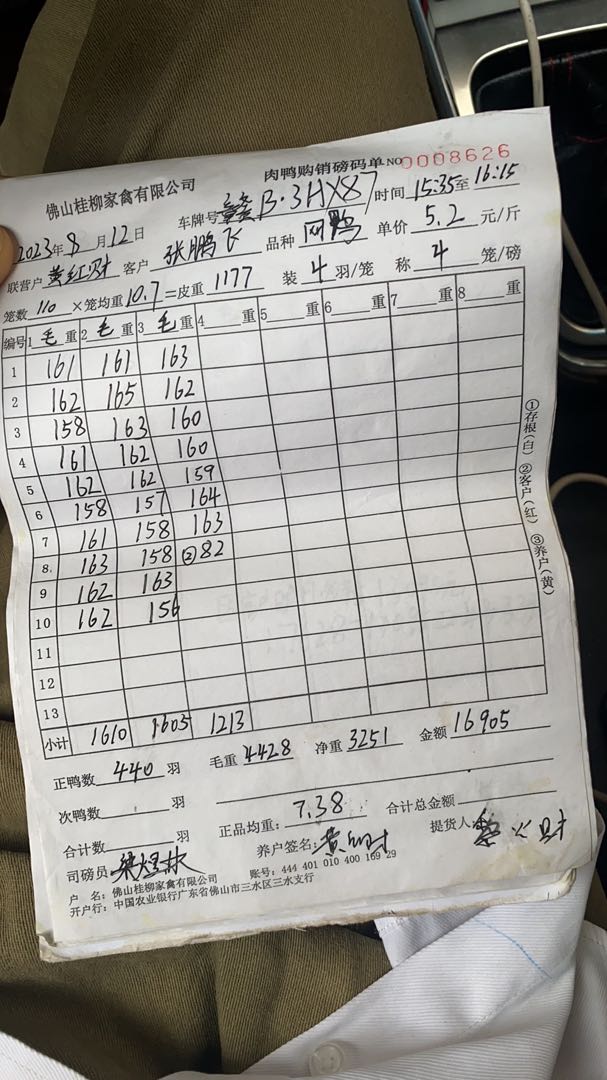 佛山桂柳家禽有限公司 肉鸭购销磅码单 NO 0008626
2023年8月12日 车牌号 B·3HX87 时间 15:35至16:15
联营户 黄红财 客户 张鹏飞 品种 网鸭 单价 5.2 元/斤
笼数 110 ×笼均重 10.7 =皮重 1177 装 4 羽/笼 称 4 笼/磅
编号 1 毛重 2 毛重 3 毛重 4 重 5 重 6 重 7 重 8 重
1 161 161 163
2 162 165 162
3 158 163 160
4 161 162 160
5 162 162 159
6 158 157 164
7 161 158 163
8 163 158 ②82
9 162 163
10 162 156
11
12
13
小计 1610 1605 1213
正鸭数 440 羽 毛重 4428 净重 3251 金额 16905
次鸭数 羽
合计数 羽 正品均重: 7.38 合计总金额
司磅员 养户签名: 提货人:
户 名: 佛山桂柳家禽有限公司 账号: 444 401 010 400 169 29
开户行: 中国农业银行广东省佛山市三水区三水支行
①存根(白) ②客户(红) ③养户(黄)